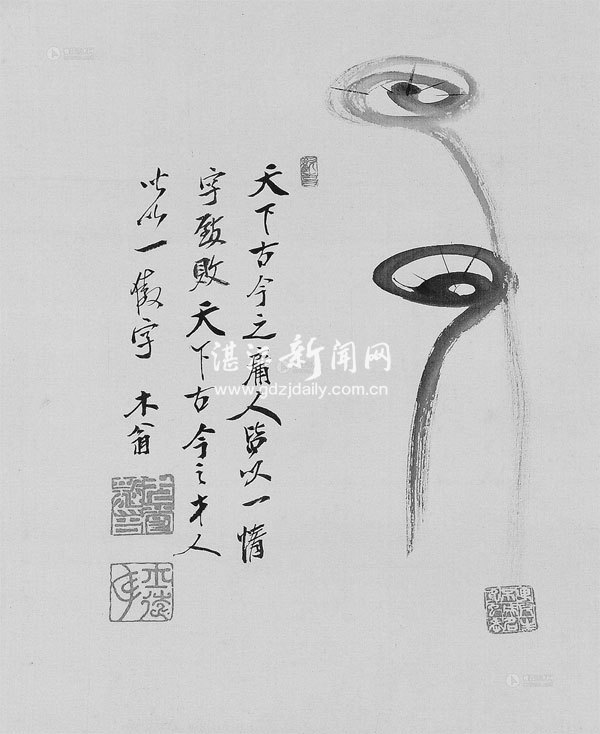 天下古今之庸人皆以一惰
字致败天下古今之才人
皆以一傲字 木翁
湛江新闻网
www.gdzjdaily.com.cn